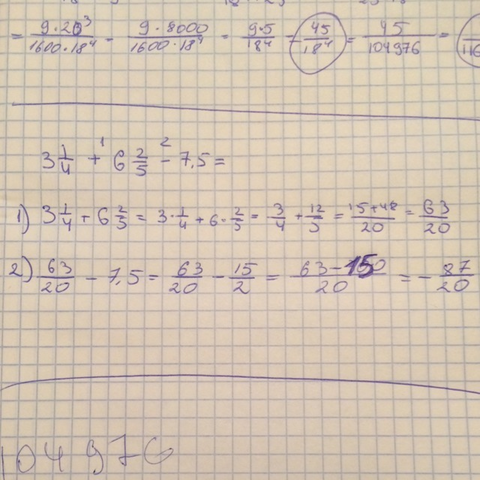 = 9·20³/1600·18⁴ - 9·8000/1600·18⁴ - 9·5/18⁴ - 45/18⁴ = 45/104976 =
3 1/4 +¹ 6 2/5 -² 7,5 =
1) 3 1/4 + 6 2/5 = 3·1/4 + 6·2/5 = 3/4 + 12/5 = 15+48/20 = 63/20
2) 63/20 - 7,5 = 63/20 - 15/2 = 63-150/20 = - 87/20
104976